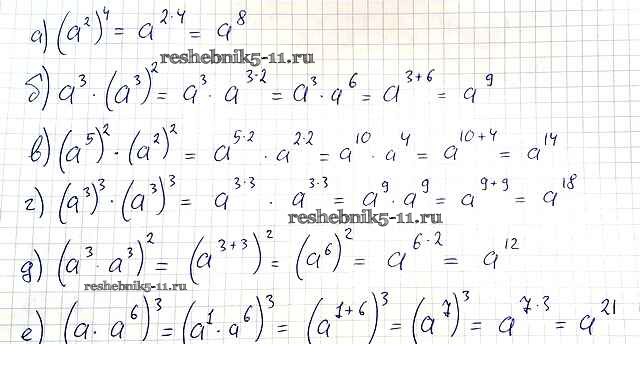 а) (a²)⁴ = a²·⁴ = a⁸
reshebnik5-11.ru
б) a³ · (a³)² = a³ · a³·² = a³ · a⁶ = a³⁺⁶ = a⁹
в) (a⁵)² · (a²)² = a⁵·² · a²·² = a¹⁰ · a⁴ = a¹⁰⁺⁴ = a¹⁴
г) (a³)³ · (a³)³ = a³·³ · a³·³ = a⁹ · a⁹ = a⁹⁺⁹ = a¹⁸
reshebnik5-11.ru
д) (a³ · a³)² = (a³⁺³)² = (a⁶)² = a⁶·² = a¹²
reshebnik5-11.ru
е) (a · a⁶)³ = (a¹ · a⁶)³ = (a¹⁺⁶)³ = (a⁷)³ = a⁷·³ = a²¹